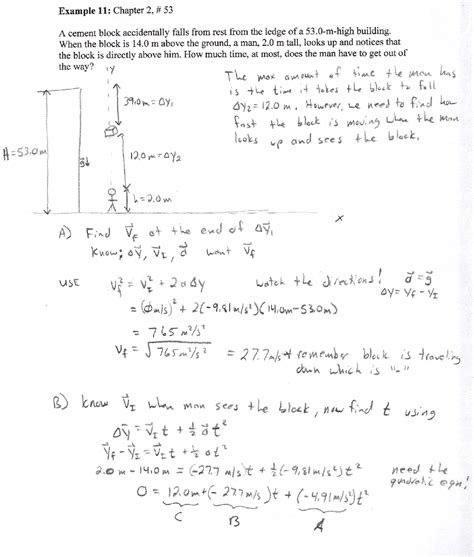 Example 11: Chapter 2, # 53
A cement block accidentally falls from rest from the ledge of a 53.0-m-high building.
When the block is 14.0 m above the ground, a man, 2.0 m tall, looks up and notices that
the block is directly above him. How much time, at most, does the man have to get out of
the way?
y
The max amount of time the man has
is the time it takes the block to fall
Δy₂ = 12.0 m. However, we need to find how
fast the block is moving when the man
looks up and sees the block.
39.0m = Δy₁
H = 53.0m
g
12.0m = Δy₂
h = 2.0m
x
A) Find V⃗f at the end of Δy⃗₁
Know; Δy⃗, V⃗I, a⃗ want V⃗f
USE Vf² = VI² + 2aΔy watch the directions! a⃗ = g⃗
Δy = Yf - YI
= (0m/s)² + 2(-9.81m/s²)(14.0m-53.0m)
= 765 m²/s²
Vf = √765 m²/s² = 27.7m/s remember block is traveling
down which is "-"
B) know V⃗I when man sees the block, now find t using
Δy⃗ = V⃗I t + ½ a⃗ t²
Y⃗f - Y⃗I = V⃗I t + ½ at²
2.0 m - 14.0m = (-27.7 m/s)t + ½(-9.81m/s²)t² need the
quadratic eqn!
0 = 12.0m + (-27.7m/s)t + (-4.91m/s²)t²
C B A